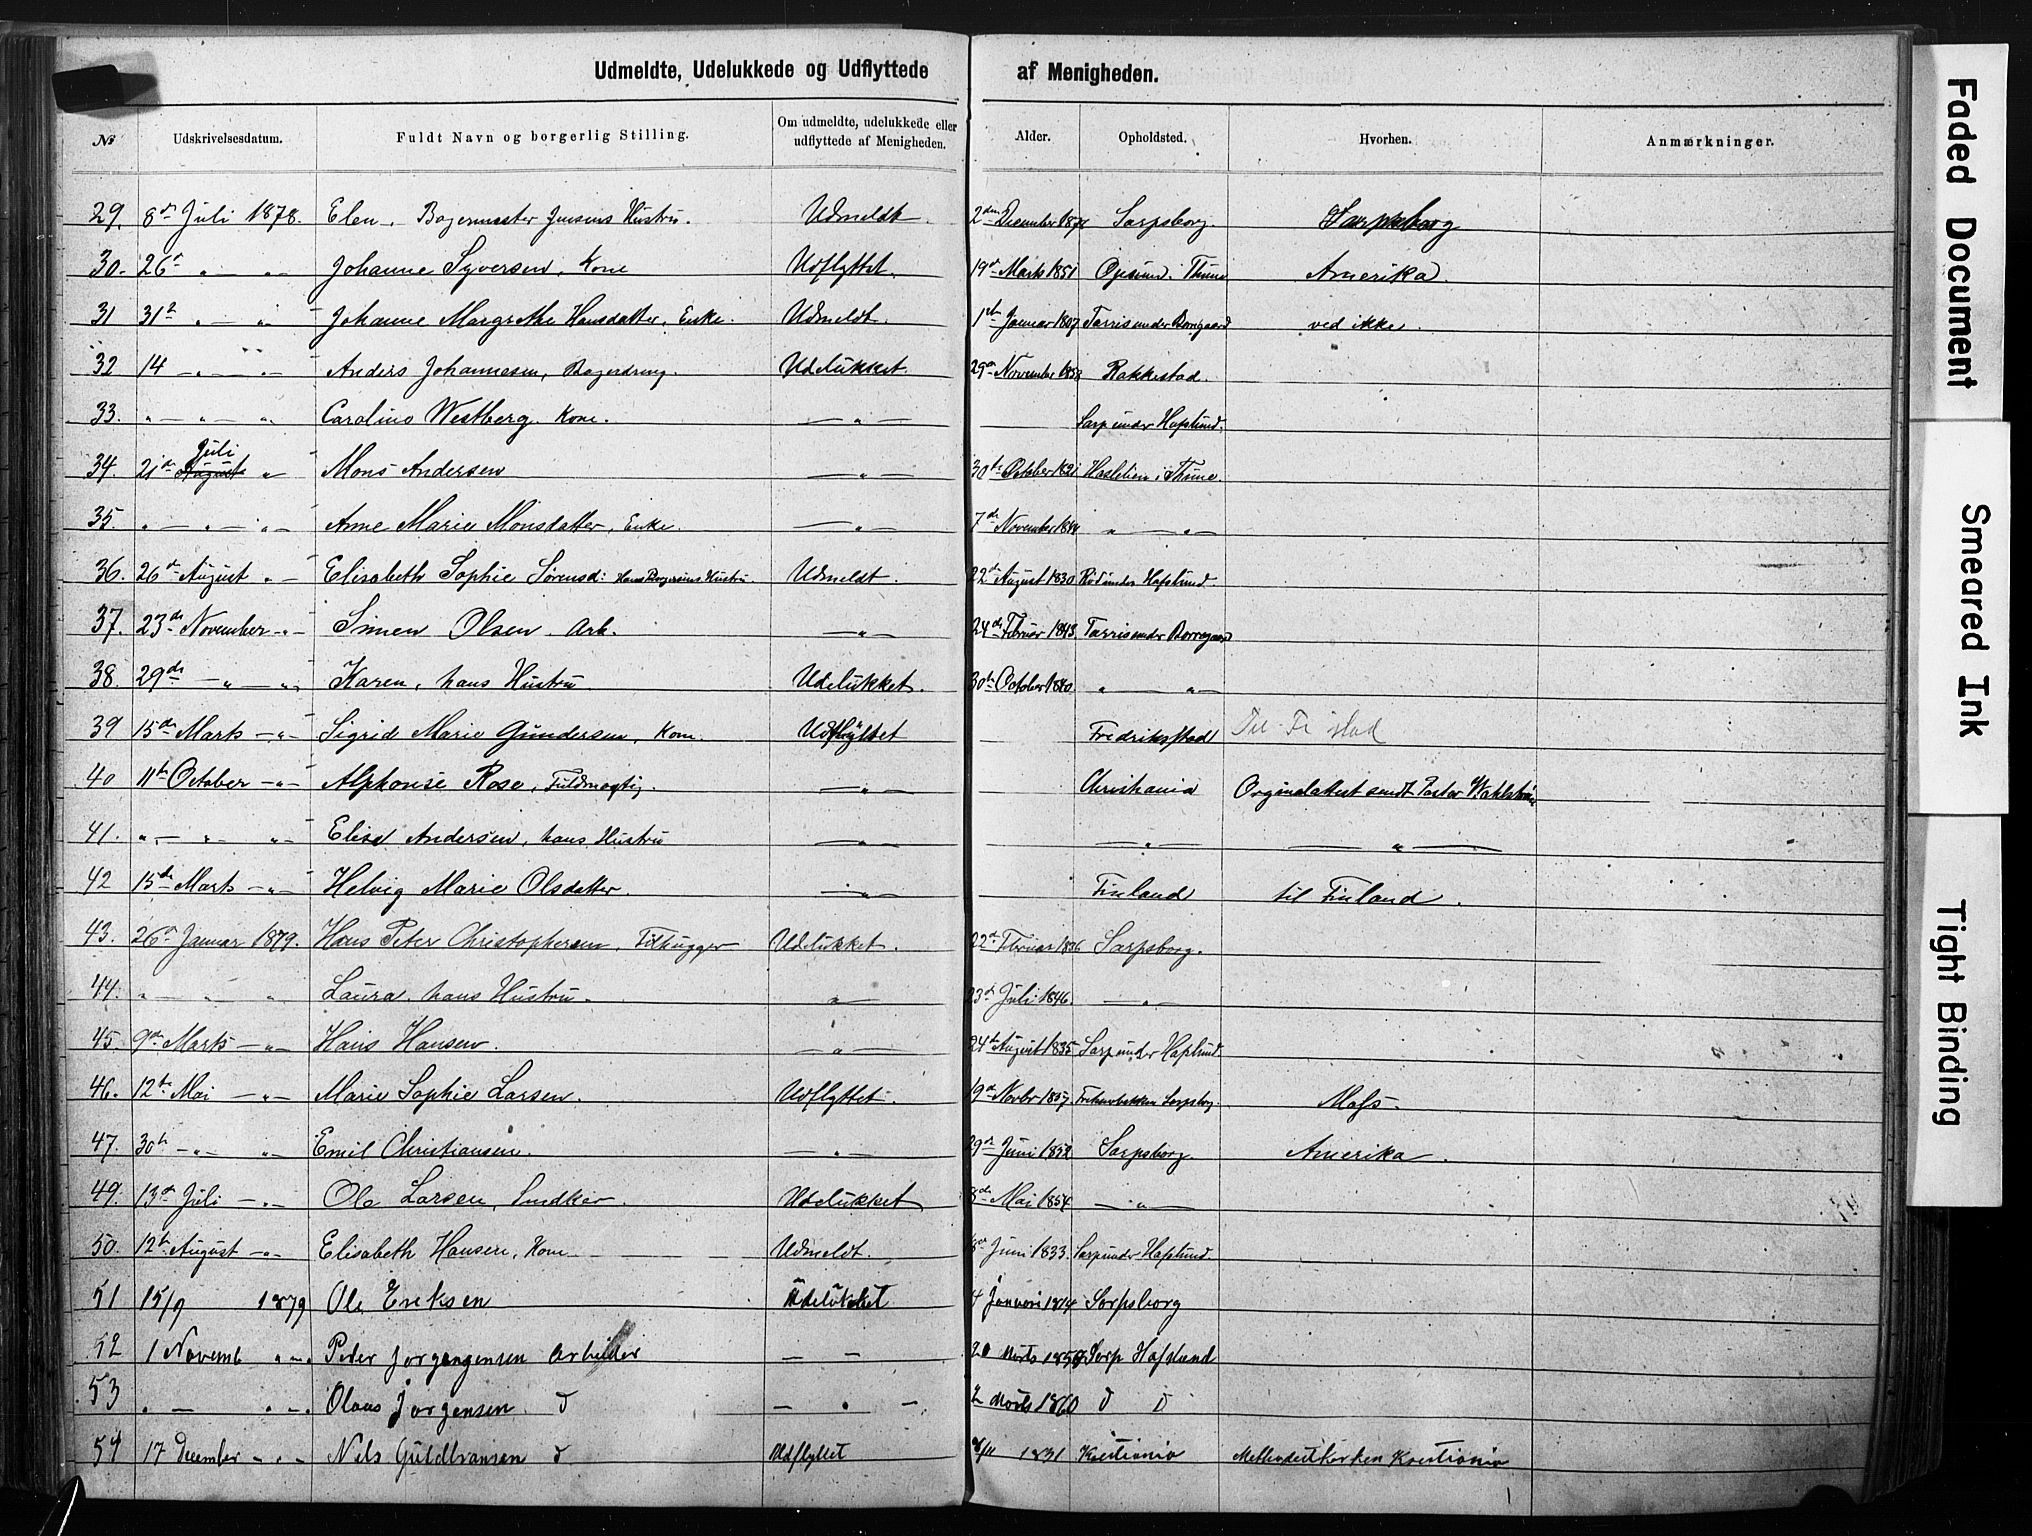 Udmeldte, Udelukkede og Udflyttede af Menigheden.
No Udskrivelsesdatum. Fuldt Navn og borgerlig Stilling. Om udmeldte, udelukkede eller udflyttede af Menigheden. Alder. Opholdsted. Hvorhen. Anmærkninger.
29. 8de Juli 1878. Elen, Bagermester Jensens Hustru. Udmeldt. 2den Desember Sarpsborg. Sarpsborg
30. 26de " — " — Johanne Syversen, Kone Udflyttet. 19de Marts 1851 Opsund i Thune Amerika.
31 31te " — " — Johanne Margrethe Hansdatter, Enke. Udmeldt. 1ste Januar 1807 Tarris under Borregaard ved ikke.
32 14 — " — " — Anders Johannesen, Bagerdreng. Udelukket. 29de November 1858 Rakkestad.
33. " — " — " Caroline Westberg. Kone. — " — Sarp under Hafslund.
34. 21de August Juli " Mons Andersen — " — 30te October 1821 Haslebien i Thune.
35. " — " — " — Anne Marie Monsdatter, Enke. — " — 7de November " — " —
36. 26de August " — Elisabeth Sophie Sørensd: Hans Hustru Udmeldt. 22de August 1830 Rød under Hafslund.
37. 23de November - " - Simen Olsen. Arb. — " — 24de Februar 1843. Tarris under Borregaard
38. 29de — " — " Karen, hans Hustru Udelukket. 30te October 1840. " — " —
39 15de Marts — " — Sigrid Marie Gundersen, Kone. Udflyttet Fredriksstad Til Fr stad
40 11te October — " — Alphonse Rose, Fuldmægtig. — " — Christiania Orginalattest sendt Pastor Wahlstrøm
41. " — " — " — Elise Andersen, hans Hustru — " — — " — — " —
42 15de Marts — " — Helvig Marie Olsdatter. — " — Finland til Finland.
43. 26de Januar 1879. Hans Peter Christophersen, Filhugger Udelukket. 22de Februar 1836 Sarpsborg.
44. " — " " Laura, hans Hustru. " — 23de Juli 1846. — " —
45. 9de Marts — " — Hans Hansen. — " — 24de August 1835 Sarp under Hafslund.
46. 12te Mai — " — Marie Sophie Larsen. Udflyttet. 19de Novbr 1857 Sarpsborg. Mofs.
47. 30te — " — " — Emil Christiansen. — " — 29de Juni 1852 Sarpsborg. Amerika.
49. 13de Juli — " — Ole Larsen, Snedker Udelukket 8de Mai 1854 — " —
50. 12te August — " — Elisabeth Hansen, Kone Udmeldt. 8de Juni 1833. Sarp under Hafslund.
51 15/9 1879 Ole Eriksen Udelukket 4 Januari 1874 Sarpsborg
52 1 Novemb " — " Peder Jorgengensen Arbeider — — 20 Marts Sarp Hafslund
53 " — " — " Olaus Jorgensen d — " — 2 Marts 1860 d d
54 17 December - " - Nils Guldbransen d Udflyttet 8/11 1831 Kristiania Methodistkirken Kristiania
Faded Document
Smeared Ink
Tight Binding